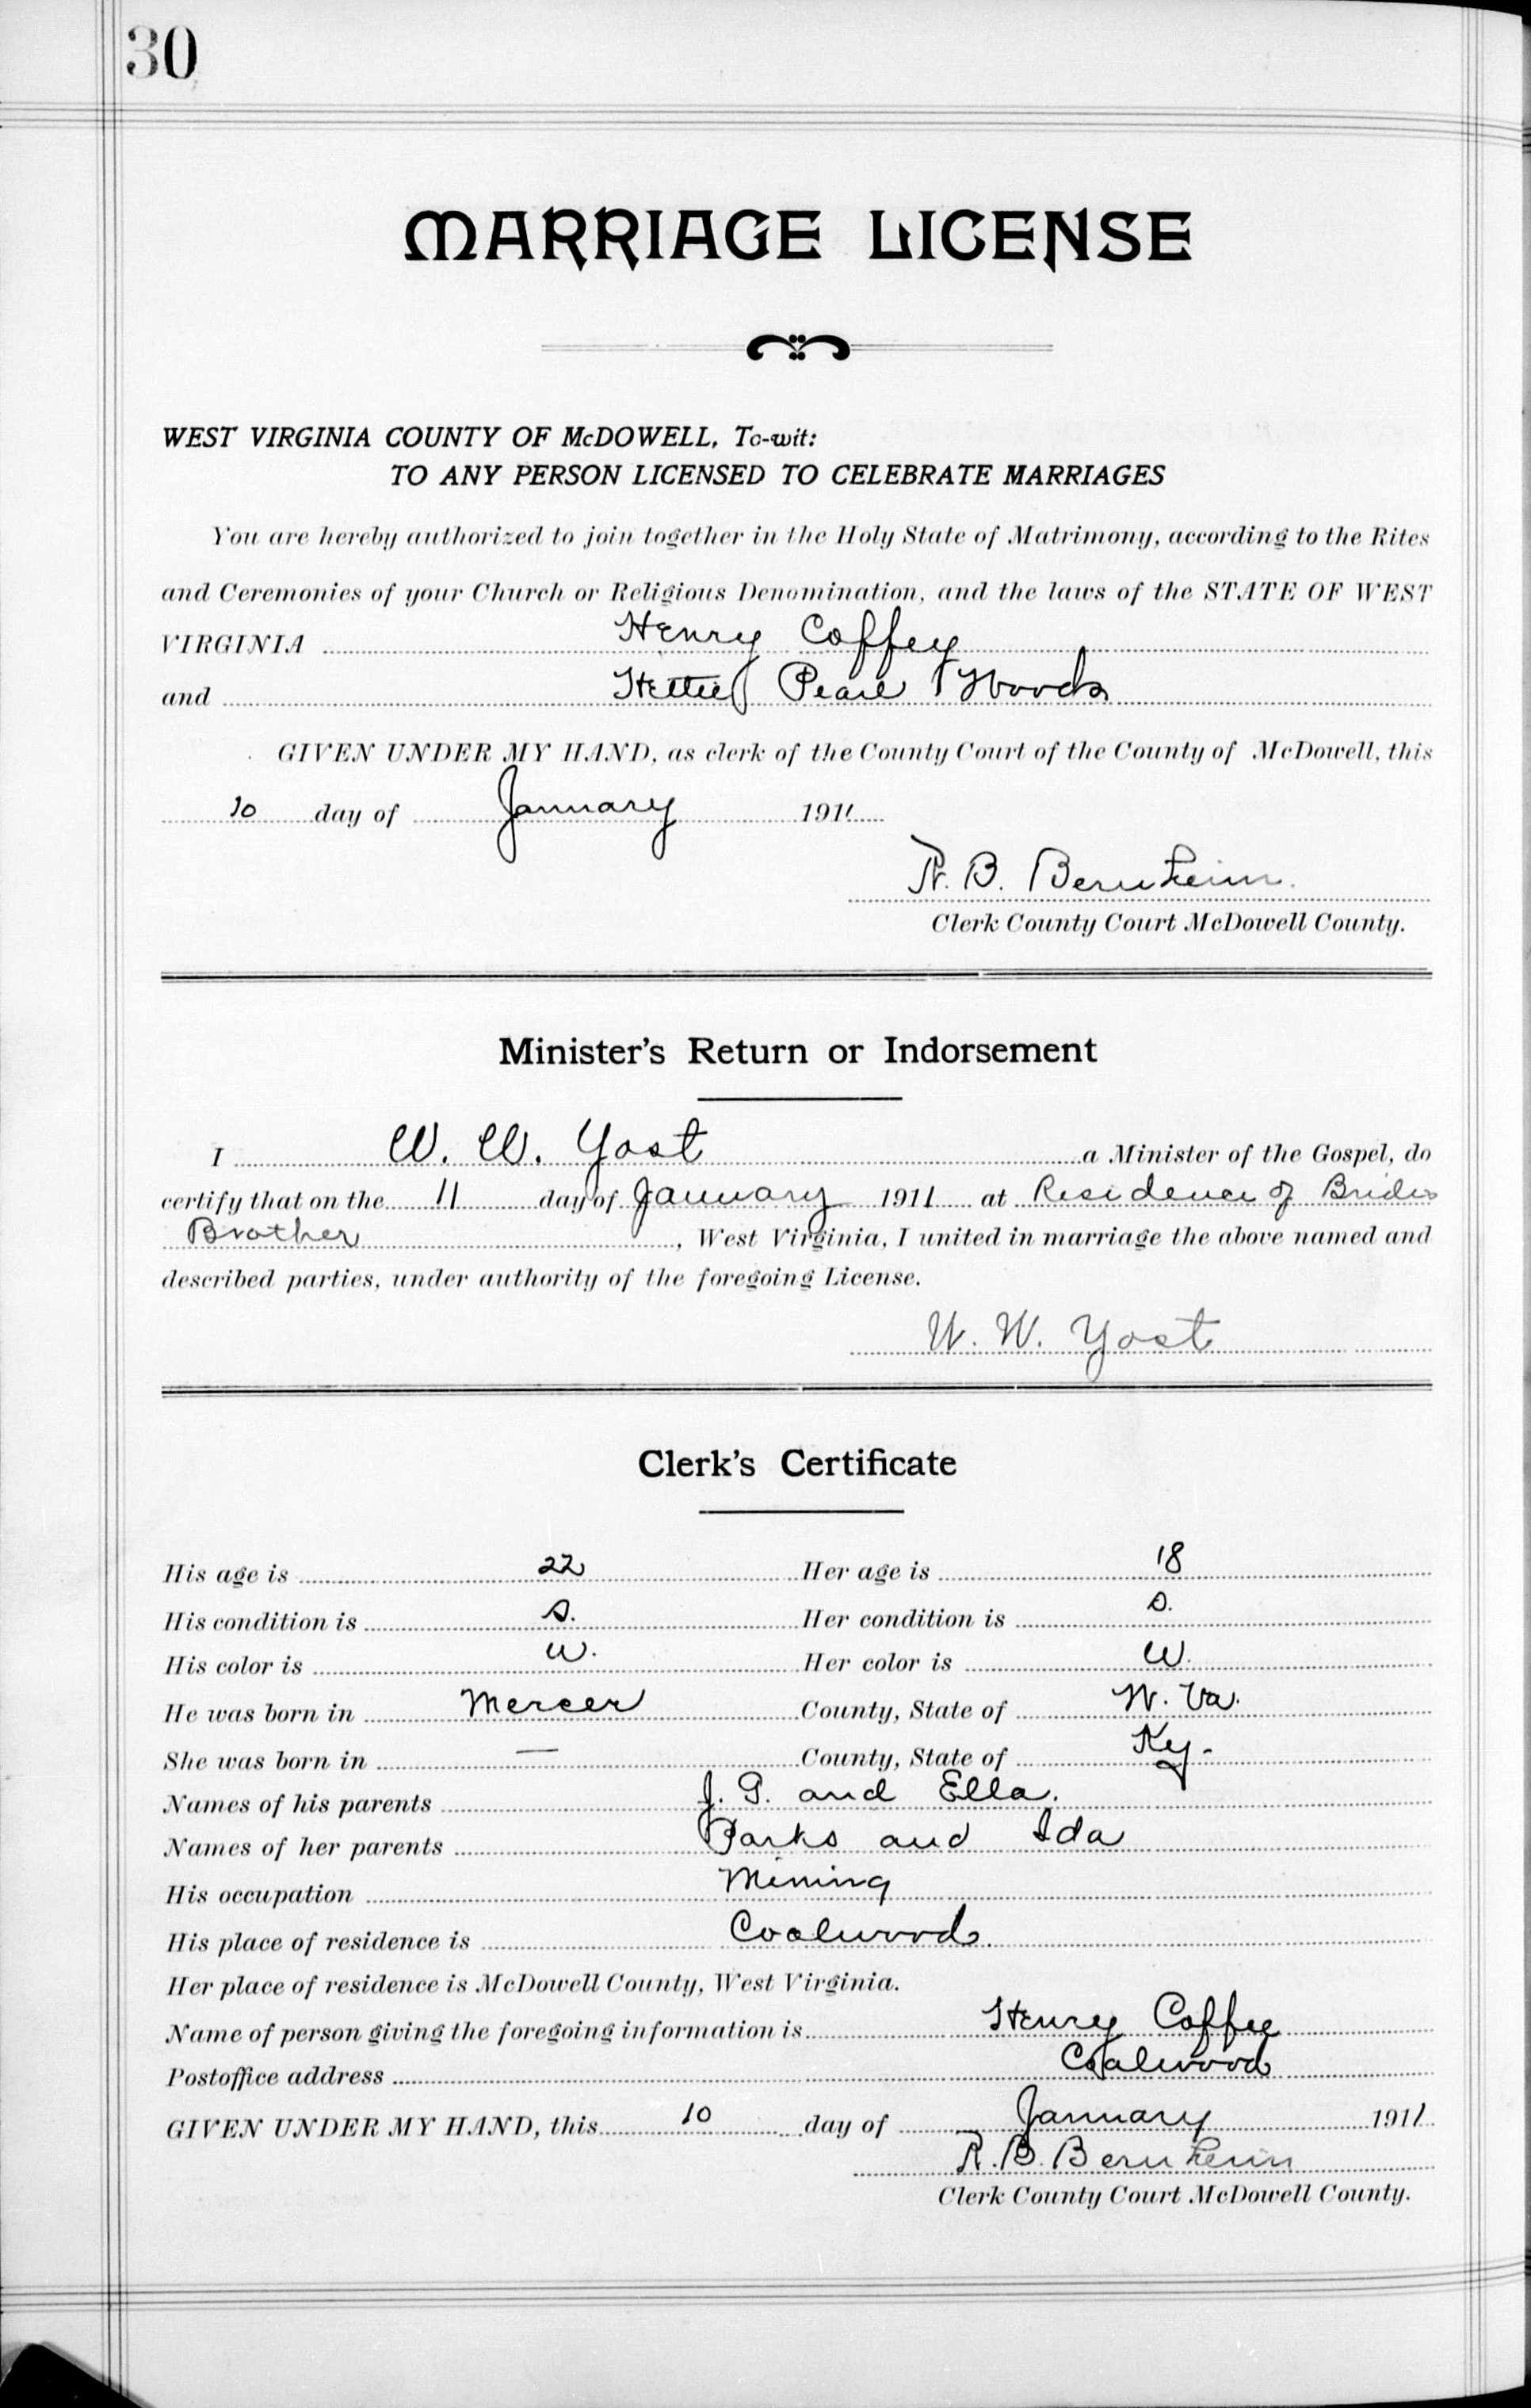 30
MARRIAGE LICENSE
WEST VIRGINIA COUNTY OF McDOWELL, To-wit:
TO ANY PERSON LICENSED TO CELEBRATE MARRIAGES
You are hereby authorized to join together in the Holy State of Matrimony, according to the Rites
and Ceremonies of your Church or Religious Denomination, and the laws of the STATE OF WEST
VIRGINIA Henry Coffey
and Hettie Pearl Woods
GIVEN UNDER MY HAND, as clerk of the County Court of the County of McDowell, this
10 day of January 1911
R. B. Bernheim.
Clerk County Court McDowell County.
Minister's Return or Indorsement
I W. W. Yost a Minister of the Gospel, do
certify that on the 11 day of January 1911 at Residence of Brides
Brother, West Virginia, I united in marriage the above named and
described parties, under authority of the foregoing License.
W. W. Yost
Clerk's Certificate
His age is 22 Her age is 18
His condition is S. Her condition is S.
His color is W. Her color is W.
He was born in Mercer County, State of W. Va.
She was born in — County, State of Ky-
Names of his parents J. P. and Ella.
Names of her parents Parks and Ida
His occupation Mining
His place of residence is Coalwood.
Her place of residence is McDowell County, West Virginia.
Name of person giving the foregoing information is Henry Coffee
Postoffice address Coalwood
GIVEN UNDER MY HAND, this 10 day of January 1911
R. B. Bernheim
Clerk County Court McDowell County.